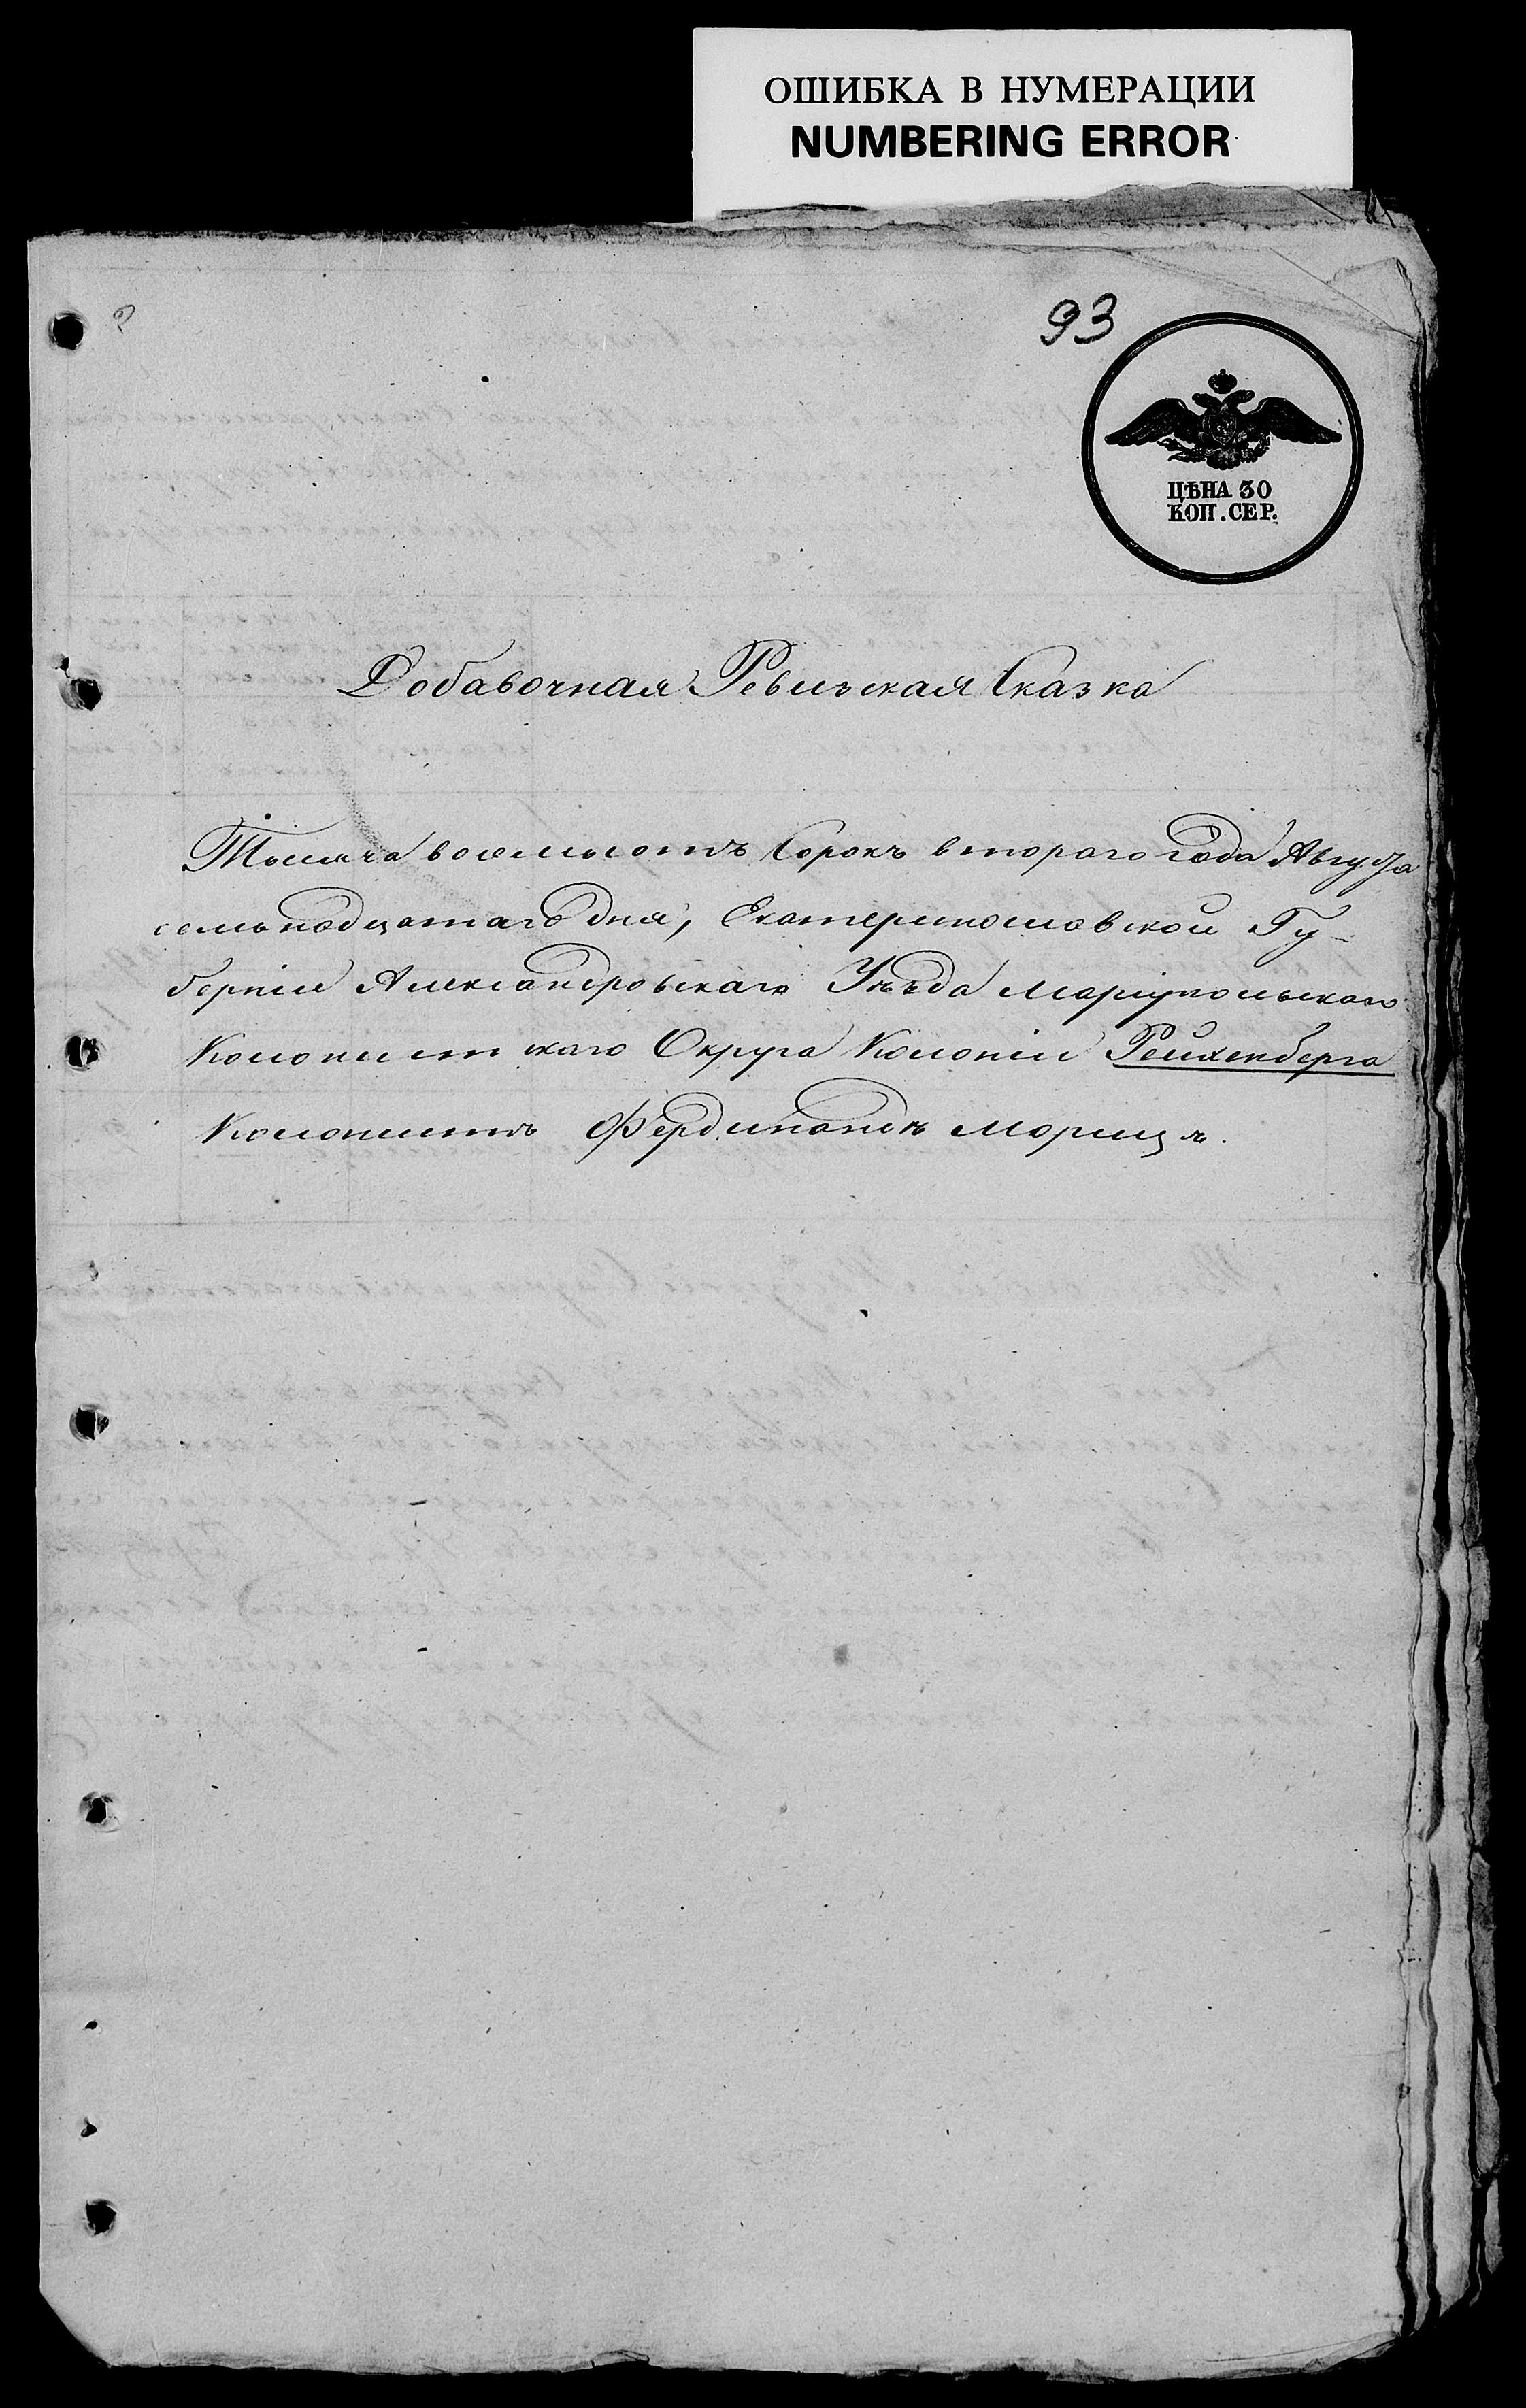 ОШИБКА В НУМЕРАЦИИ
NUMBERING ERROR
93
ЦѢНА 30
КОП. СЕР.
Добавочная Ревизская Сказка
Тысяча восемьсотъ Сорокъ втораго года Августа
семьнадцатаго дня, Екатеринославской Гу-
берніи Александровскаго Уѣзда Маріупольскаго
Колонистскаго Округа Колоніи Рейхенберга
Колонистъ Фердинандъ Морицъ.